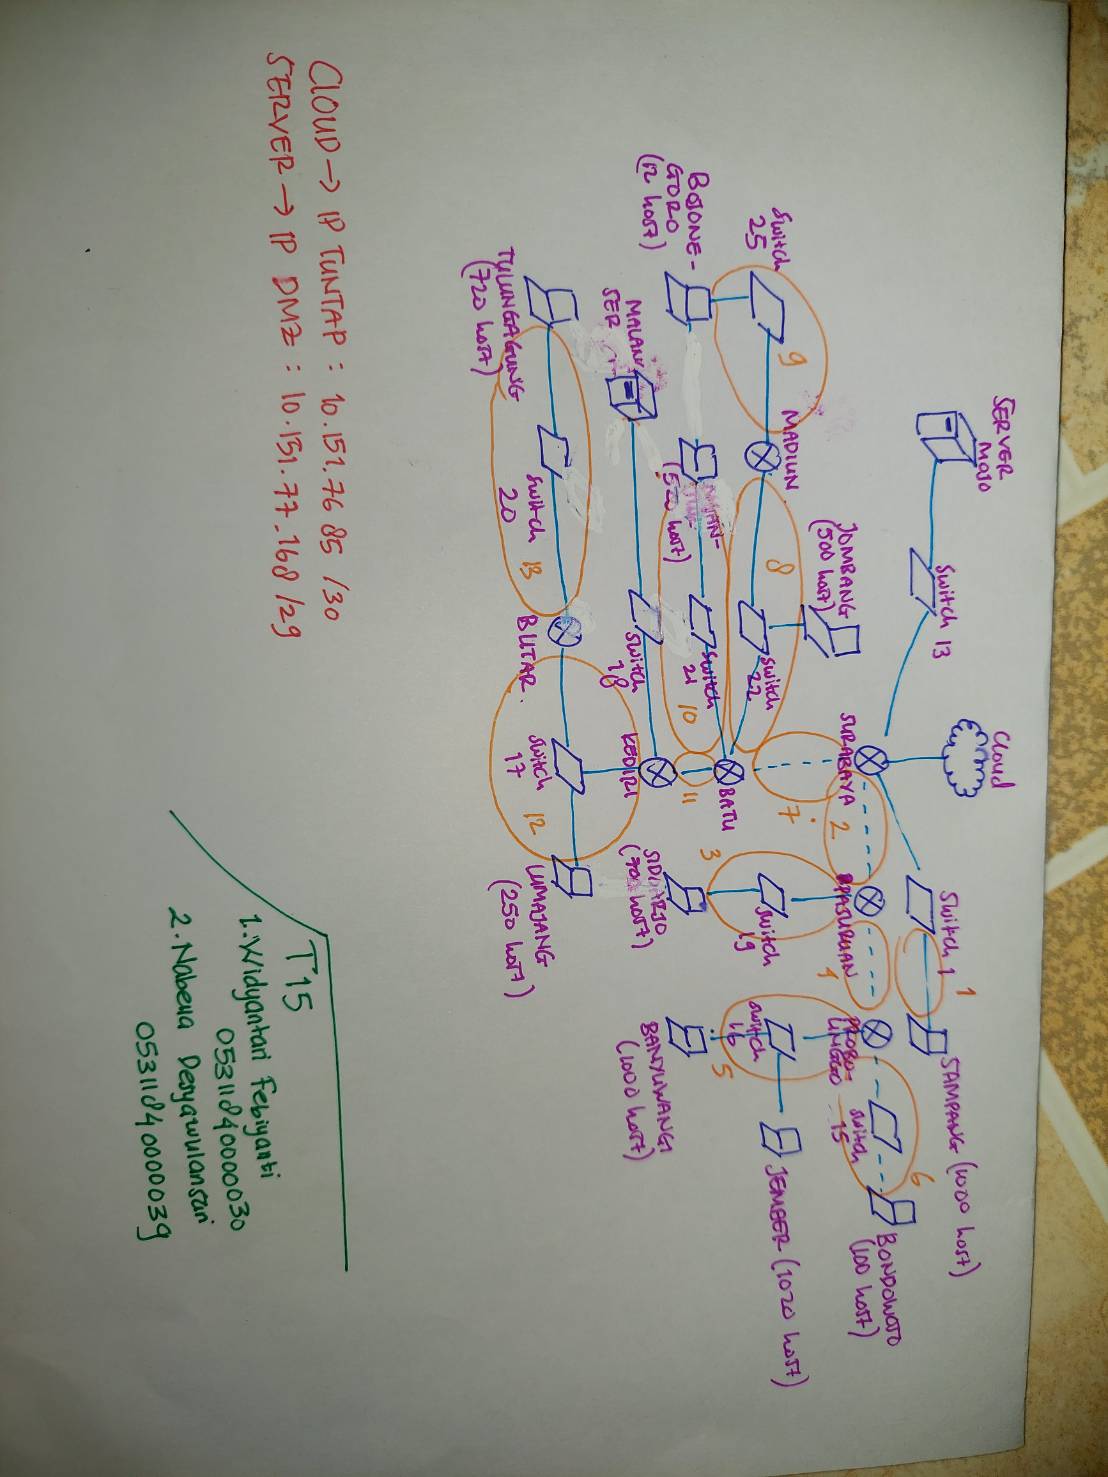 SERVER
MOJO
Switch 13
Cloud
Switch 1
1
SAMPANG (1000 host)
6
BONDOWOSO
(100 host)
Switch
15
SURABAYA
2
PASURUAN
4
PROBO-
LINGGO
JOMBANG
(500 host)
7
9
MADIUN
8
Switch
25
Switch
22
Switch
19
Switch
16
JEMBER (1020 host)
BATU
3
5
BOJONE-
GORO
(12 host)
(520 host)
Switch
21
10
11
SIDOARJO
(70 host)
BANYUWANGI
(1000 host)
MALAN
SER
Switch
18
KEDIRI
Switch
20
13
BLITAR
Switch
17
12
LUMAJANG
(250 host)
TULUNGAGUNG
(720 host)
CLOUD → IP TUNTAP : 10.151.76 85 /30
SERVER → IP DMZ : 10.151.77.168 /29
T15
1. Widyantari Febiyanti
05311840000030
2. Nabella Desyawulansari
05311840000039